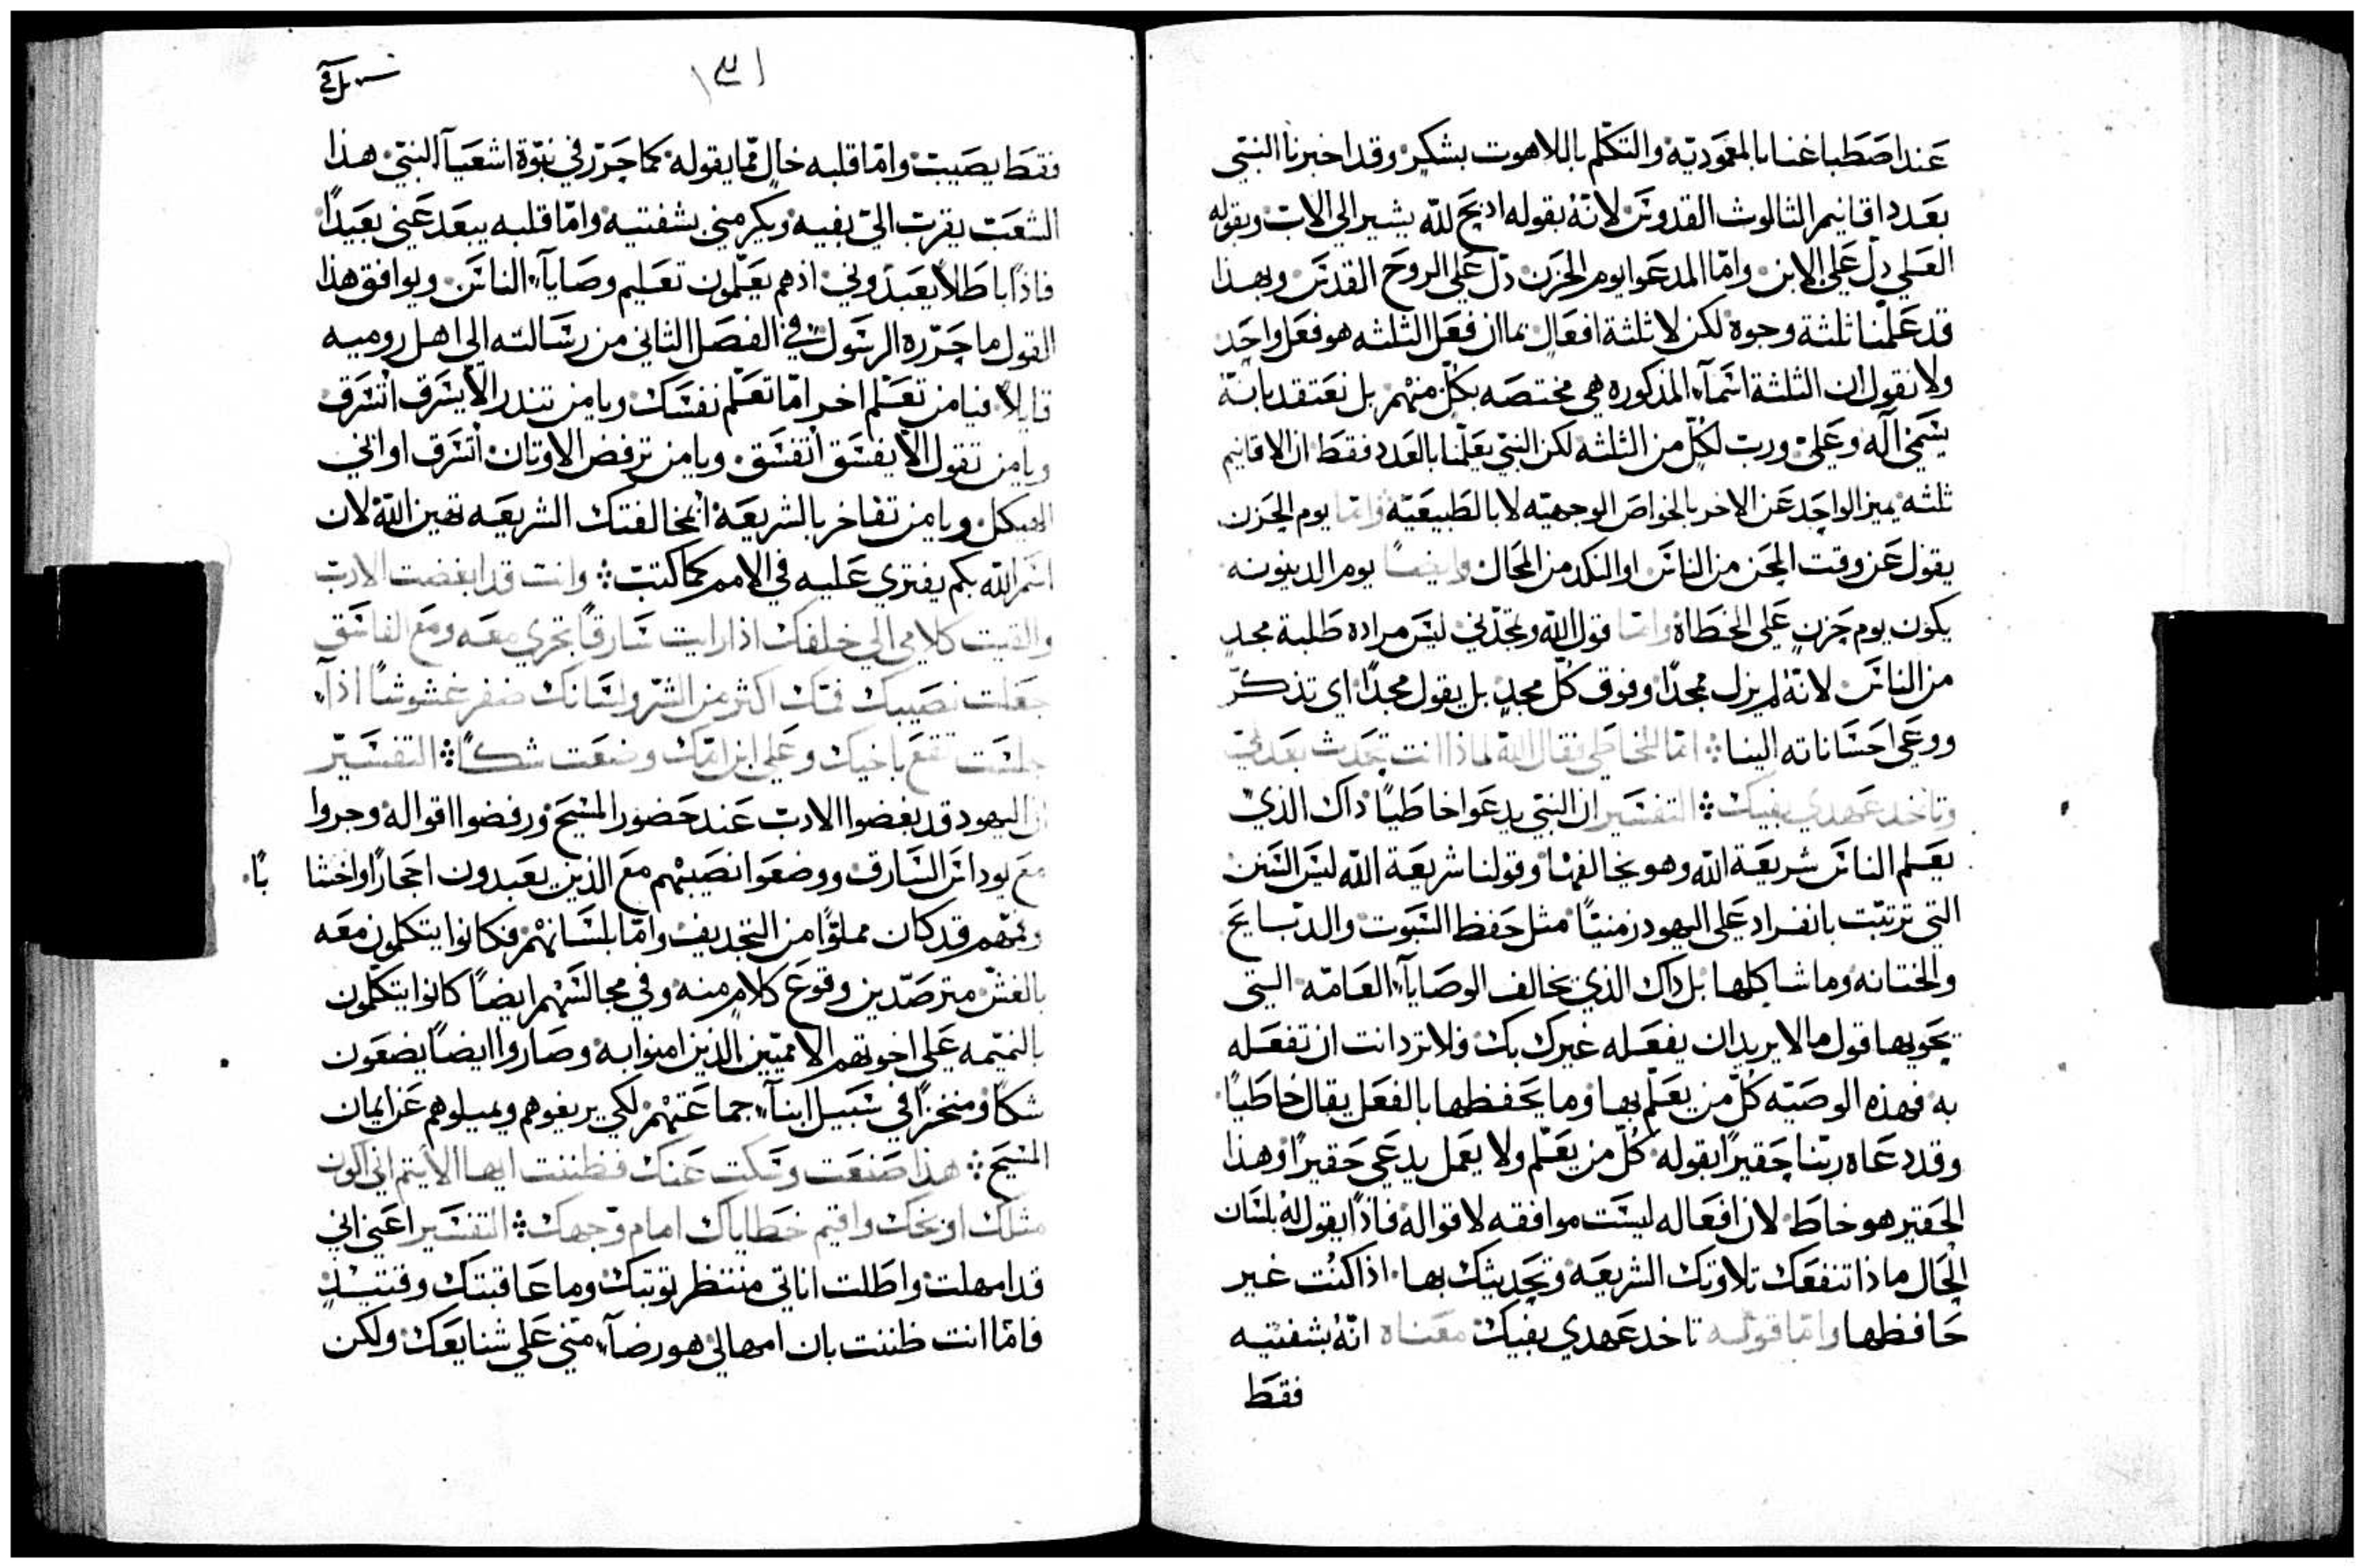 عند اصطباغنا بالمعموديه والتكلم باللاهوت بشكر وقد اخبرنا النبي
بعدد اقانيم الثالوث القدوس لانه بقوله اذبح لله يشير الي الاب وبقوله
العلي دل علي الابن واما المدعوا يوم الحزن دل علي الروح القدس وبهذا
قد علمنا ثلثة وجوه لكن لا ثلثة افعال بما ان فعل الثلثه هو فعل واحد
ولا نقول ان الثلثة اسماء المذكوره هي مختصه بكل منهم بل نعتقد بانه
يسمي اله وعلي ورب لكل من الثلثه لكن النبي يعلمنا بالعدد فقط ان الاقانيم
ثلثه يميز الواحد عن الاخر بالخواص الوجهيه لا بالطبيعيه واما يوم الحزن
يقول عن وقت المحن من الناس او النكد من المحال وايضا يوم الدينونه
يكون يوم حزن علي الخطاة واما قول الله وتمجدني ليس مراده طلبة مجد
من الناس لانه لم يزل ممجدا وفوق كل مجد بل يقول مجدا اي تذكر
ووعي احساناته الينا اما للخاطي فقال الله لماذا انت تحدث بعدلي
وتاخد عهدي بفيك التفسير ان النبي يدعوا خاطيا ذاك الذي
يعلم الناس شريعة الله وهو يخالفها وقولنا شريعة الله ليس السنن
التي ترتبت بانفراد علي اليهود زمنيا مثل حفظ السبوت والدبايح
والختانه وما شاكلها بل ذاك الذي يخالف الوصايا العامه التي
تحويها قول ما لا يريد ان يفعله غيرك بك فلا ترد انت ان تفعله
به فهذه الوصيه كل من يعلم بها وما يحفظها بالفعل يقال خاطيا
وقد دعاه ربنا حقيرا بقوله كل من يعلم ولا يعمل يدعي حقيرا وهذا
الحقير هو خاط لان افعاله ليست موافقه لاقواله فاذا يقول له بلسان
الحال ماذا تنفعك تلاوتك الشريعه وتحديثك بها اذا كنت غير
حافظها واما قوله تاخد عهدي بفيك معناه انه بشفتيه
فقط
فقط يصيت واما قلبه خال مما يقوله كما حرر في نبوة اشعيا النبي هذا
الشعب يقرب الي بفيه ويكرمني بشفتيه واما قلبه يبعد عني بعيدا
فاذا باطلا يعبدوني اذ هم يعلمون تعليم وصايا الناس ويوافق هذا
القول ما حرره الرسول في الفصل الثاني من رسالته الي اهل روميه
قايلا فيا من تعلم اخر اما تعلم نفسك ويا من تندر الا يسرق اتسرق
ويا من تقول الا يفسق اتفسق ويا من ترفض الاوثان اتسرق اواني
الهيكل ويا من تفاخر بالشريعه ابمخالفتك الشريعه تهين الله لان
اسم الله بكم يفتري عليه في الامم كما كتب وانت قد ابغضت الادب
والقيت كلامي الي خلفك اذا رايت سارقا تجري معه ومع الفاسق
جعلت نصيبك فمك اكثر من الشر ولسانك ضفر غشوشا اذا
جلست تقع باخيك وعلي ابن امك وضعت شكا التفسير
ان اليهود قد بغضوا الادب عند حضور المسيح ورفضوا اقواله وجروا
مع يوداس السارق ووضعوا نصيبهم مع الذين يعبدون احجارا واخشا با
وفمهم قد كان مملوا من التجديف واما بلسانهم فكانوا يتكلمون معه
بالغش مترصدين وقوع كلام منه وفي مجالسهم ايضا كانوا يتكلمون
بالنميمه علي اخوتهم الامميين الذين امنوا به وصاروا ايضا يضعون
شكا ومنخزا في سبيل ابناء جماعتهم لكي يريغوهم ويميلوهم عن ايمان
المسيح هذا صنعت وسكت عنك فظننت ايها الاثيم اني اكون
مثلك اوبخك واقيم خطاياك امام وجهك التفسير اعني اني
قد امهلت واطلت اناتي منتظر توبتك وما عاقبتك وقتيذ
فاما انت ظننت بان امهالي هو رضاء مني علي شنايعك ولكن